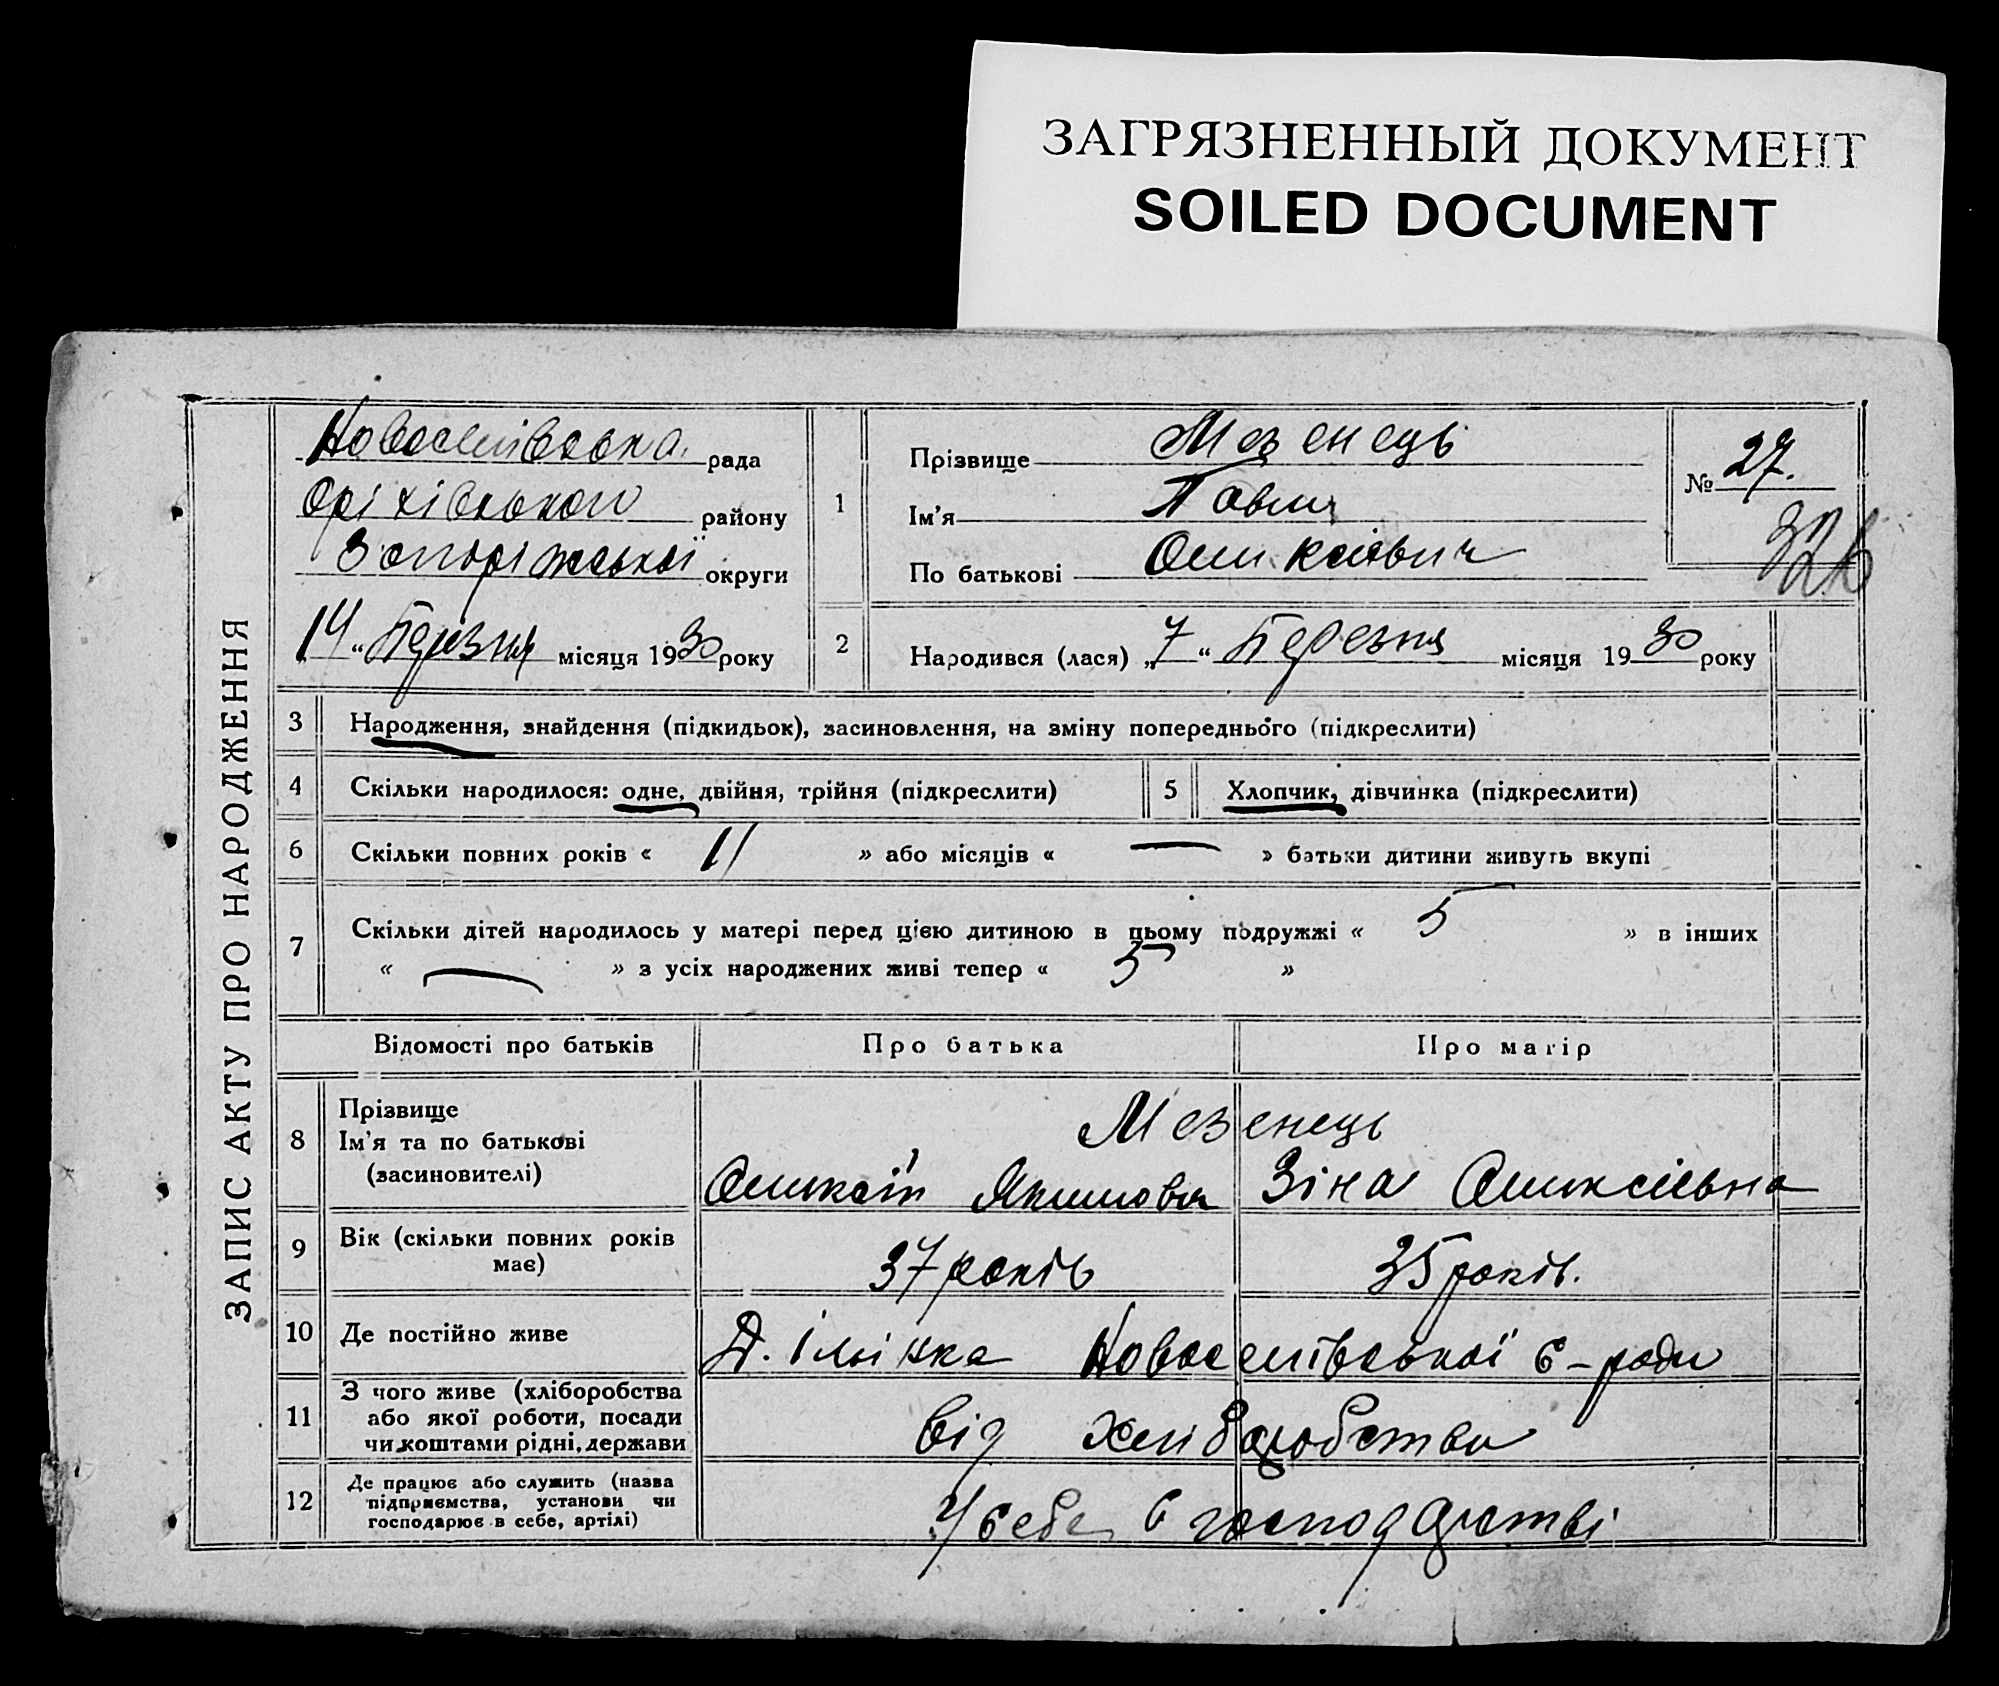 ЗАГРЯЗНЕННЫЙ ДОКУМЕНТ
SOILED DOCUMENT
ЗАПИС АКТУ ПРО НАРОДЖЕННЯ
Новоселівська рада
Оріхівського району
Запоріжської округи
14 " Березня місяця 1930 року
1
Прізвище Мезенець
Ім'я Павло
По батькові Олексієвич
№ 27.
326
2
Народився (лася) „7 “ Березня місяця 1930 року
3 Народження, знайдення (підкидьок), засиновлення, на зміну попереднього (підкреслити)
4 Скільки народилося: одне, двійня, трійня (підкреслити) 5 Хлопчик, дівчинка (підкреслити)
6 Скільки повних років « 11 » або місяців « — » батьки дитини живуть вкупі
7 Скільки дітей народилось у матері перед цією дитиною в цьому подружжі « 5 » в інших
« — » з усіх народжених живі тепер « 5 »
Відомості про батьків Про батька Про матір
8 Прізвище
Ім'я та по батькові
(засиновителі)
Мезенець
Олексій Якимович Зіна Олексієвна
9 Вік (скільки повних років
має)
37 років 35 років.
10 Де постійно живе Д. Ілінка Новоселівської с-ради
11 З чого живе (хліборобства
або якої роботи, посади
чи коштами рідні, держави
від хліборобства
12 Де працює або служить (назва
підприємства, установи чи
господарює в себе, артілі)
У себе в господарстві